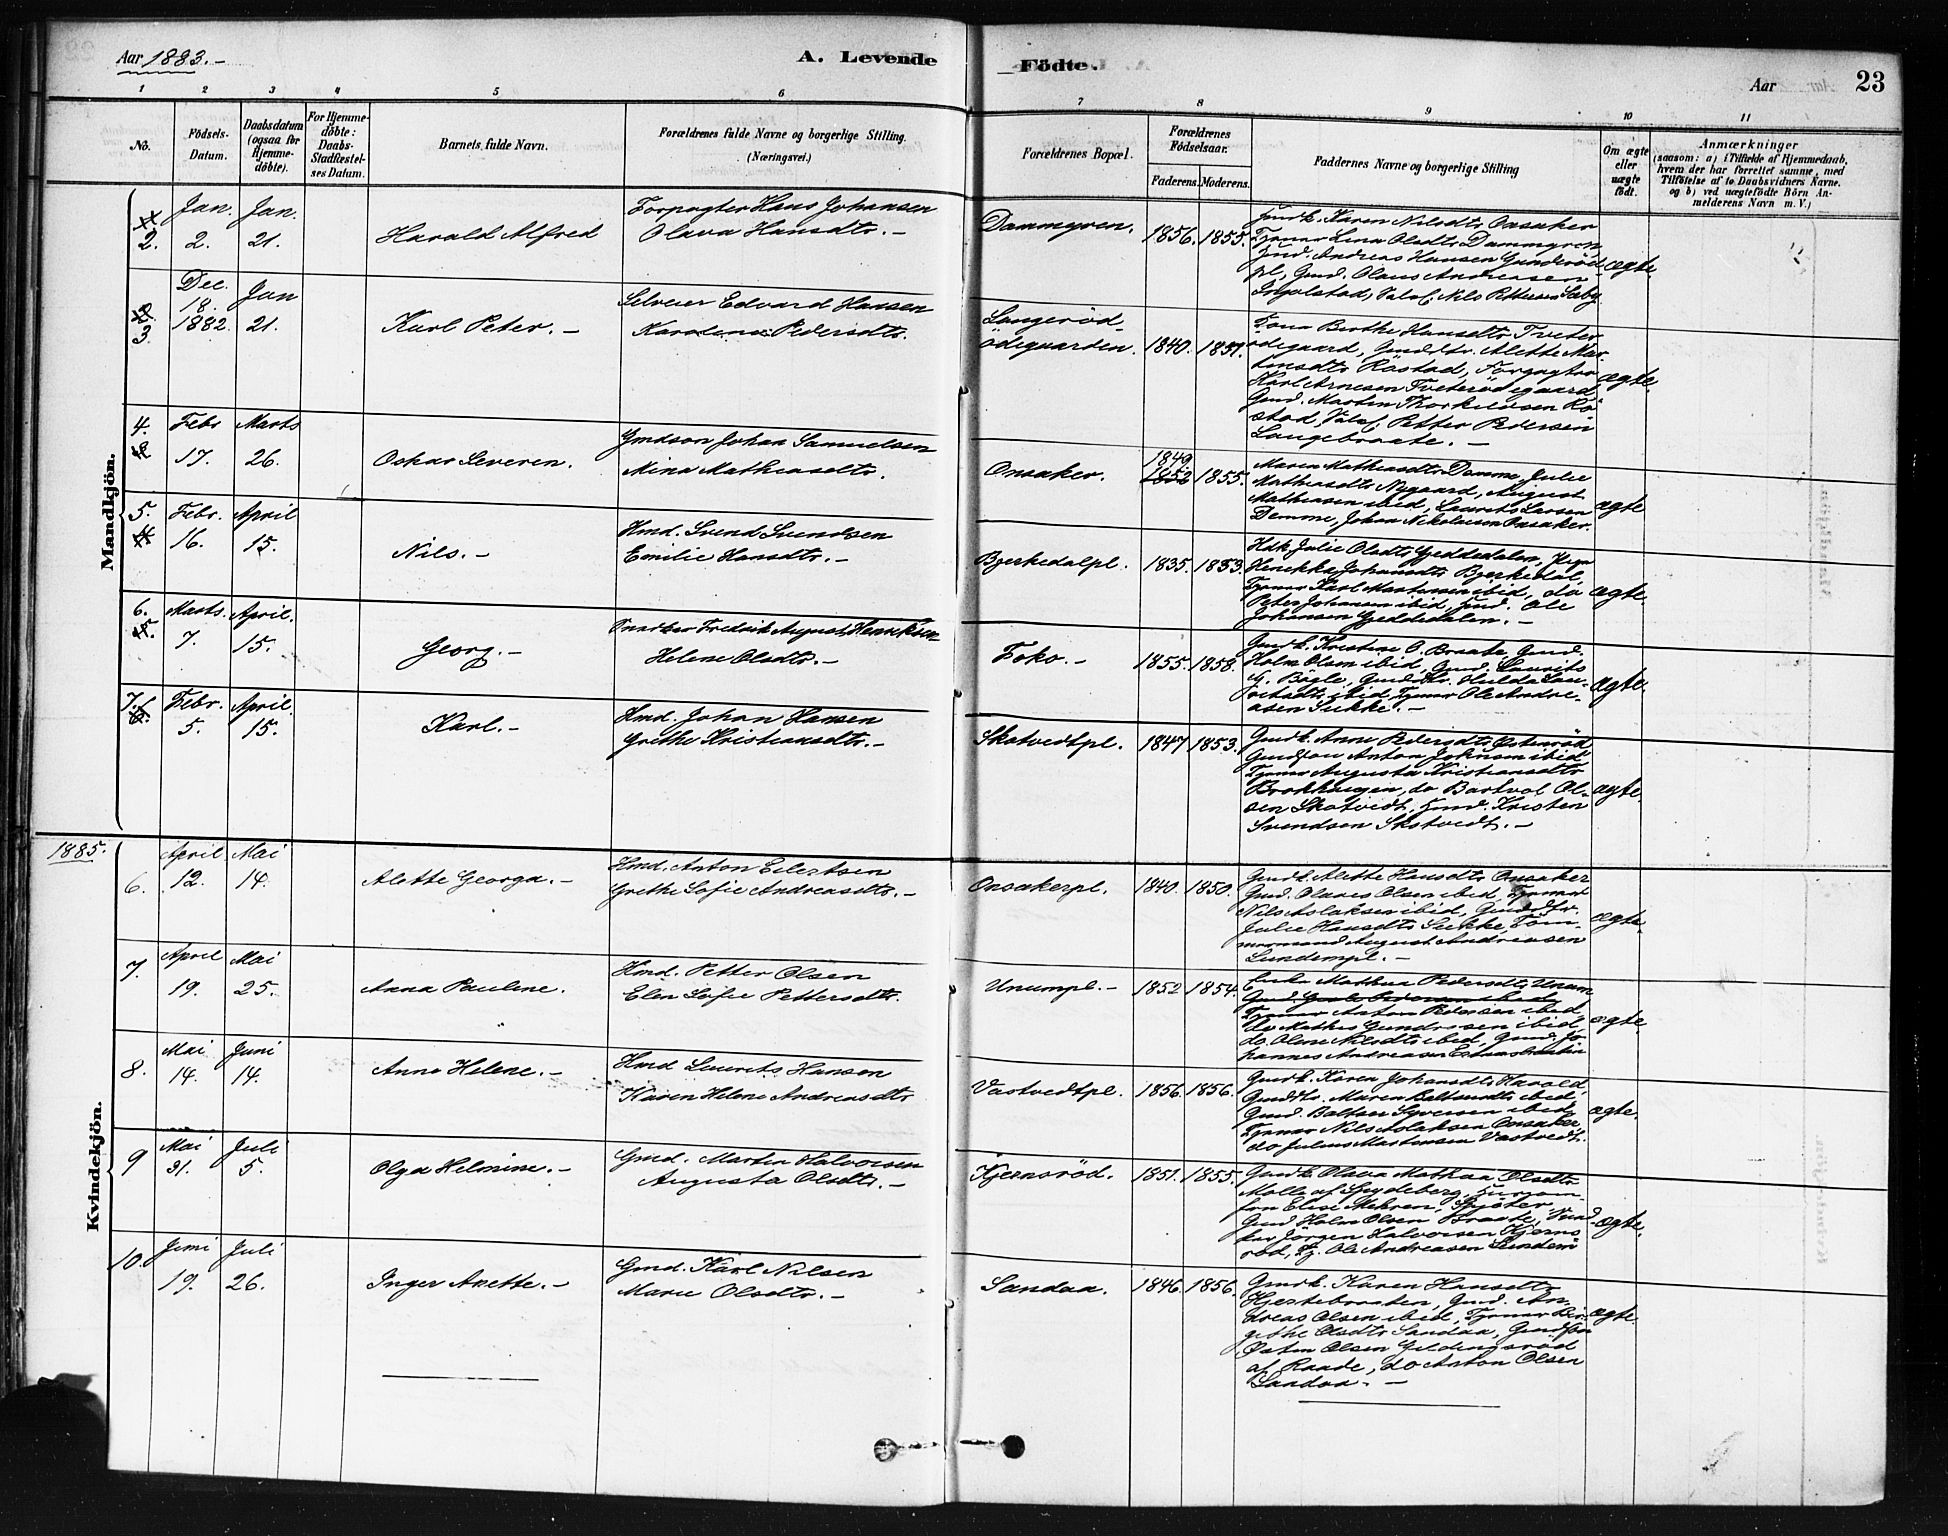 Aar 1883.-
A. Levende
Födte.
Aar
23
1 2 3 4 5 6 7 8 9 10 11
No.
Födsels-
Datum.
Daabsdatum
(ogsaa for
Hjemme-
döbte).
For Hjemme-
döbte:
Daabs-
Stadfæstel-
ses Datum.
Barnets fulde Navn.
Forældrenes fulde Navne og borgerlige Stilling.
(Næringsvei.)
Forældrenes Bopæl.
Forældrenes
Födselsaar.
Faderens. Moderens.
Faddernes Navne og borgerlige Stilling
Om ægte
eller
uægte
födt.
Anmærkninger
(saasom: a) i Tilfælde af Hjemmedaab,
hvem der har forrettet samme, med
Tilföielse af to Daabsvidners Navne.
og b) ved uægtefödte Börn An-
melderens Navn m. V.)
Mandkjön.
2.
Jan.
2.
Jan.
21.
Harald Alfred
Forpagter Hans Johansen
Olava Hansdtr.-
Dammyren.
1856. 1855.
Gmdk. Karen Nilsdtr Onsaker
Tjnmø Lina Olsdtr Dammyren,
Gmd. Andreas Hansen Gunderød
pl, Gmd. Olaus Andreasen
Ingolstad, Nils Pettersen Sæby
ægte.
3.
Dec.
18.
1882.
Jan
21.
Karl Peter.-
Selveier Edvard Hansen
Karolena Pedersdtr.
Langeröd-
ödegaarden.
1840. 1851.
Kona Berthe Hansdtr Tveter
ödegaard, Gmddtr. Alette Mar-
tinsdtr Röstad, Forpagter
Karl Arnesen Tveterödegaard
Gmd. Martin Thorkildsen Rö
stad, Petter Pedersen
Langebraate.-
ægte.
4.
Febr
17.
Marts
26.
Oskar Severin.
Gmdsøn Johan Samuelsen
Mina Mathiasdtr.
Onsaker.
1849
1852 1855.
Maren Mathiasdtr Damme, Julie
Mathiasdtr Nygaard, August
Mathiasen ibid, Laurits Larsen
Demme, Johan Nikolaisen Onsaker.
ægte
5.
Febr.
16.
April
15.
Nils.-
Hmd. Svend Svendsen
Emilie Hansdtr.-
Bjerkedalpl.
1835. 1853.
Hdk Julie Olsdtr Gjeddedalen, Pige
Henrikka Johansdtr Bjerkedal,
Tjnmø Karl Martinsen ibid, do
Peter Johansen ibid, Hmd. Ole
Johansen Gjeddedalen.-
ægte.
6.
Marts.
7.
April.
15.
Georg.-
Snedker Fredrik August Henriksen
Helene Olsdtr.-
Foko.-
1855. 1858.
Gmdk. Kristine O. Braate, Gmd.
Holm Olsen ibid, Gmd. Laurits
G. Bögle, Gmddtr. Hulda Lau-
ritsdtr ibid, Tjnmø Ole Andre-
asen Sukke.-
ægte.
7.
Febr.
5.
April.
15.
Karl.-
Hmd. Johan Hansen
Grethe Kristiansdtr.-
Skotvedtpl.
1847 1853.
Gmdk. Anne Pedersdtr Ostenröd
Gmdsøn Anton Johnsen ibid
Tjnmø Augusta Kristiansdtr
Brokhaugen, do Bartvol Ol-
sen Skotvedt, Hmd. Kristen
Svendsen Skotvedt.-
ægte.
1885.
Kvindekjön.
6.
April
12.
Mai
14.
Alette Georga.-
Hmd. Anton Eilertsen
Grethe Sofie Andreasdtr.-
Onsakerpl.
1840. 1850.
Gmdk. Alette Hansdtr Onsaker
Gmd. Olaves Olsen ibid, Tjnmø
Nils Aslaksen ibid, Gmddtr.
Julie Hansdtr Sukke, Töm-
mermand August Andreasen
Lundempl.-
ægte.
7.
April
19.
Mai
25.
Anna Pauline.
Hmd. Petter Olsen
Elen Sofie Pettersdtr.
Unumpl.-
1852 1854.
Enke Mathea Pedersdtr Unum
Tjnmø Anton Pedersen ibid
do Mathis Gundersen ibid,
do. Oline Nilsdtr ibid, Gmd. Jo-
hannes Andreasen
ægte
8.
Mai
14.
Juni
14.
Anna Helene.-
Hmd Laurits Hansen
Karen Helene Andreasdtr
Vastvedtpl.
1856. 1856.
Gmdk. Karen Johansdtr Harald
Gmddtr. Maren Baltsersdtr ibid,
Gmd. Baltser Syversen ibid,
Tjnmø Nils Aslaksen Onsaker,
do Julius Martinsen Vastvedt.
ægte.
9
Mai
31.
Juli
5.
Olga Helmine.-
Gmd. Martin Halvorsen
Augusta Olsdtr.-
Kjernsröd.
1851. 1855.
Gmdk. Olava Mathea Olsdtr
Molle af Spydeberg,
Elise Mehren,
Gmd Holm Olsen Braate,
Jörgen Halvorsen Kjerns
röd, Tj. Ole Andreasen Lundem
ægte.
10.
Juni
19.
Juli
26.
Inger Anette.-
Gmd. Karl Nilsen
Marie Olsdtr.-
Sandaa.
1846. 1856.
Gmdk. Karen Hansdtr
Hjestebraaten, Gmd. An-
dreas Olsen ibid, Tjnmø Bir-
githe Olsdtr Sandaa, Gmdsøn
Østen Olsen Gildingsröd
af Raade, do Anton Olsen
Sandaa.-
ægte.